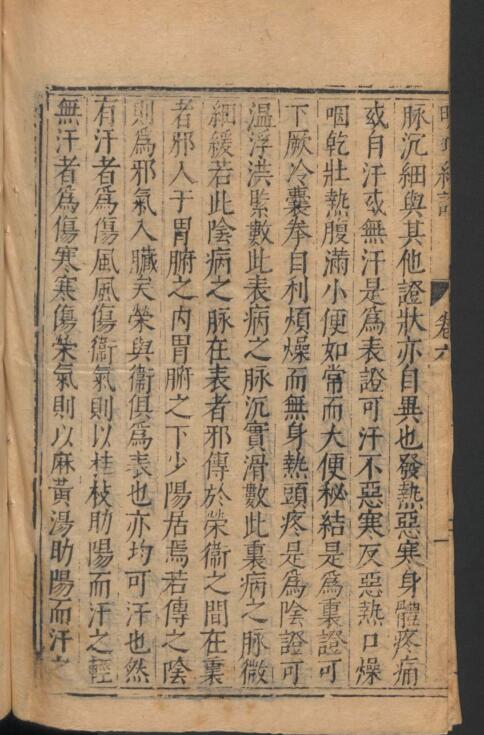 卷六
脉沉細與其他證狀亦自異也發熱惡寒身體疼痛
或自汗或無汗是爲表證可汗不惡寒反惡熱口燥
咽乾壯熱腹滿小便如常而大便秘結是爲裏證可
下厥冷囊拳自利煩燥而無身熱頭疼是爲陰證可
温浮洪緊數此表病之脉沉實滑數此裏病之脉微
細緩若此陰病之脉在表者邪傳於榮衞之間在裏
者邪入于胃腑之内胃腑之下少陽居焉若傳之陰
則爲邪氣入臟矣榮與衞俱爲表也亦均可汗也然
有汗者爲傷風風傷衞氣則以桂枝助陽而汗之輕
無汗者爲傷寒寒傷榮氣則以麻黃湯助陽而汗之